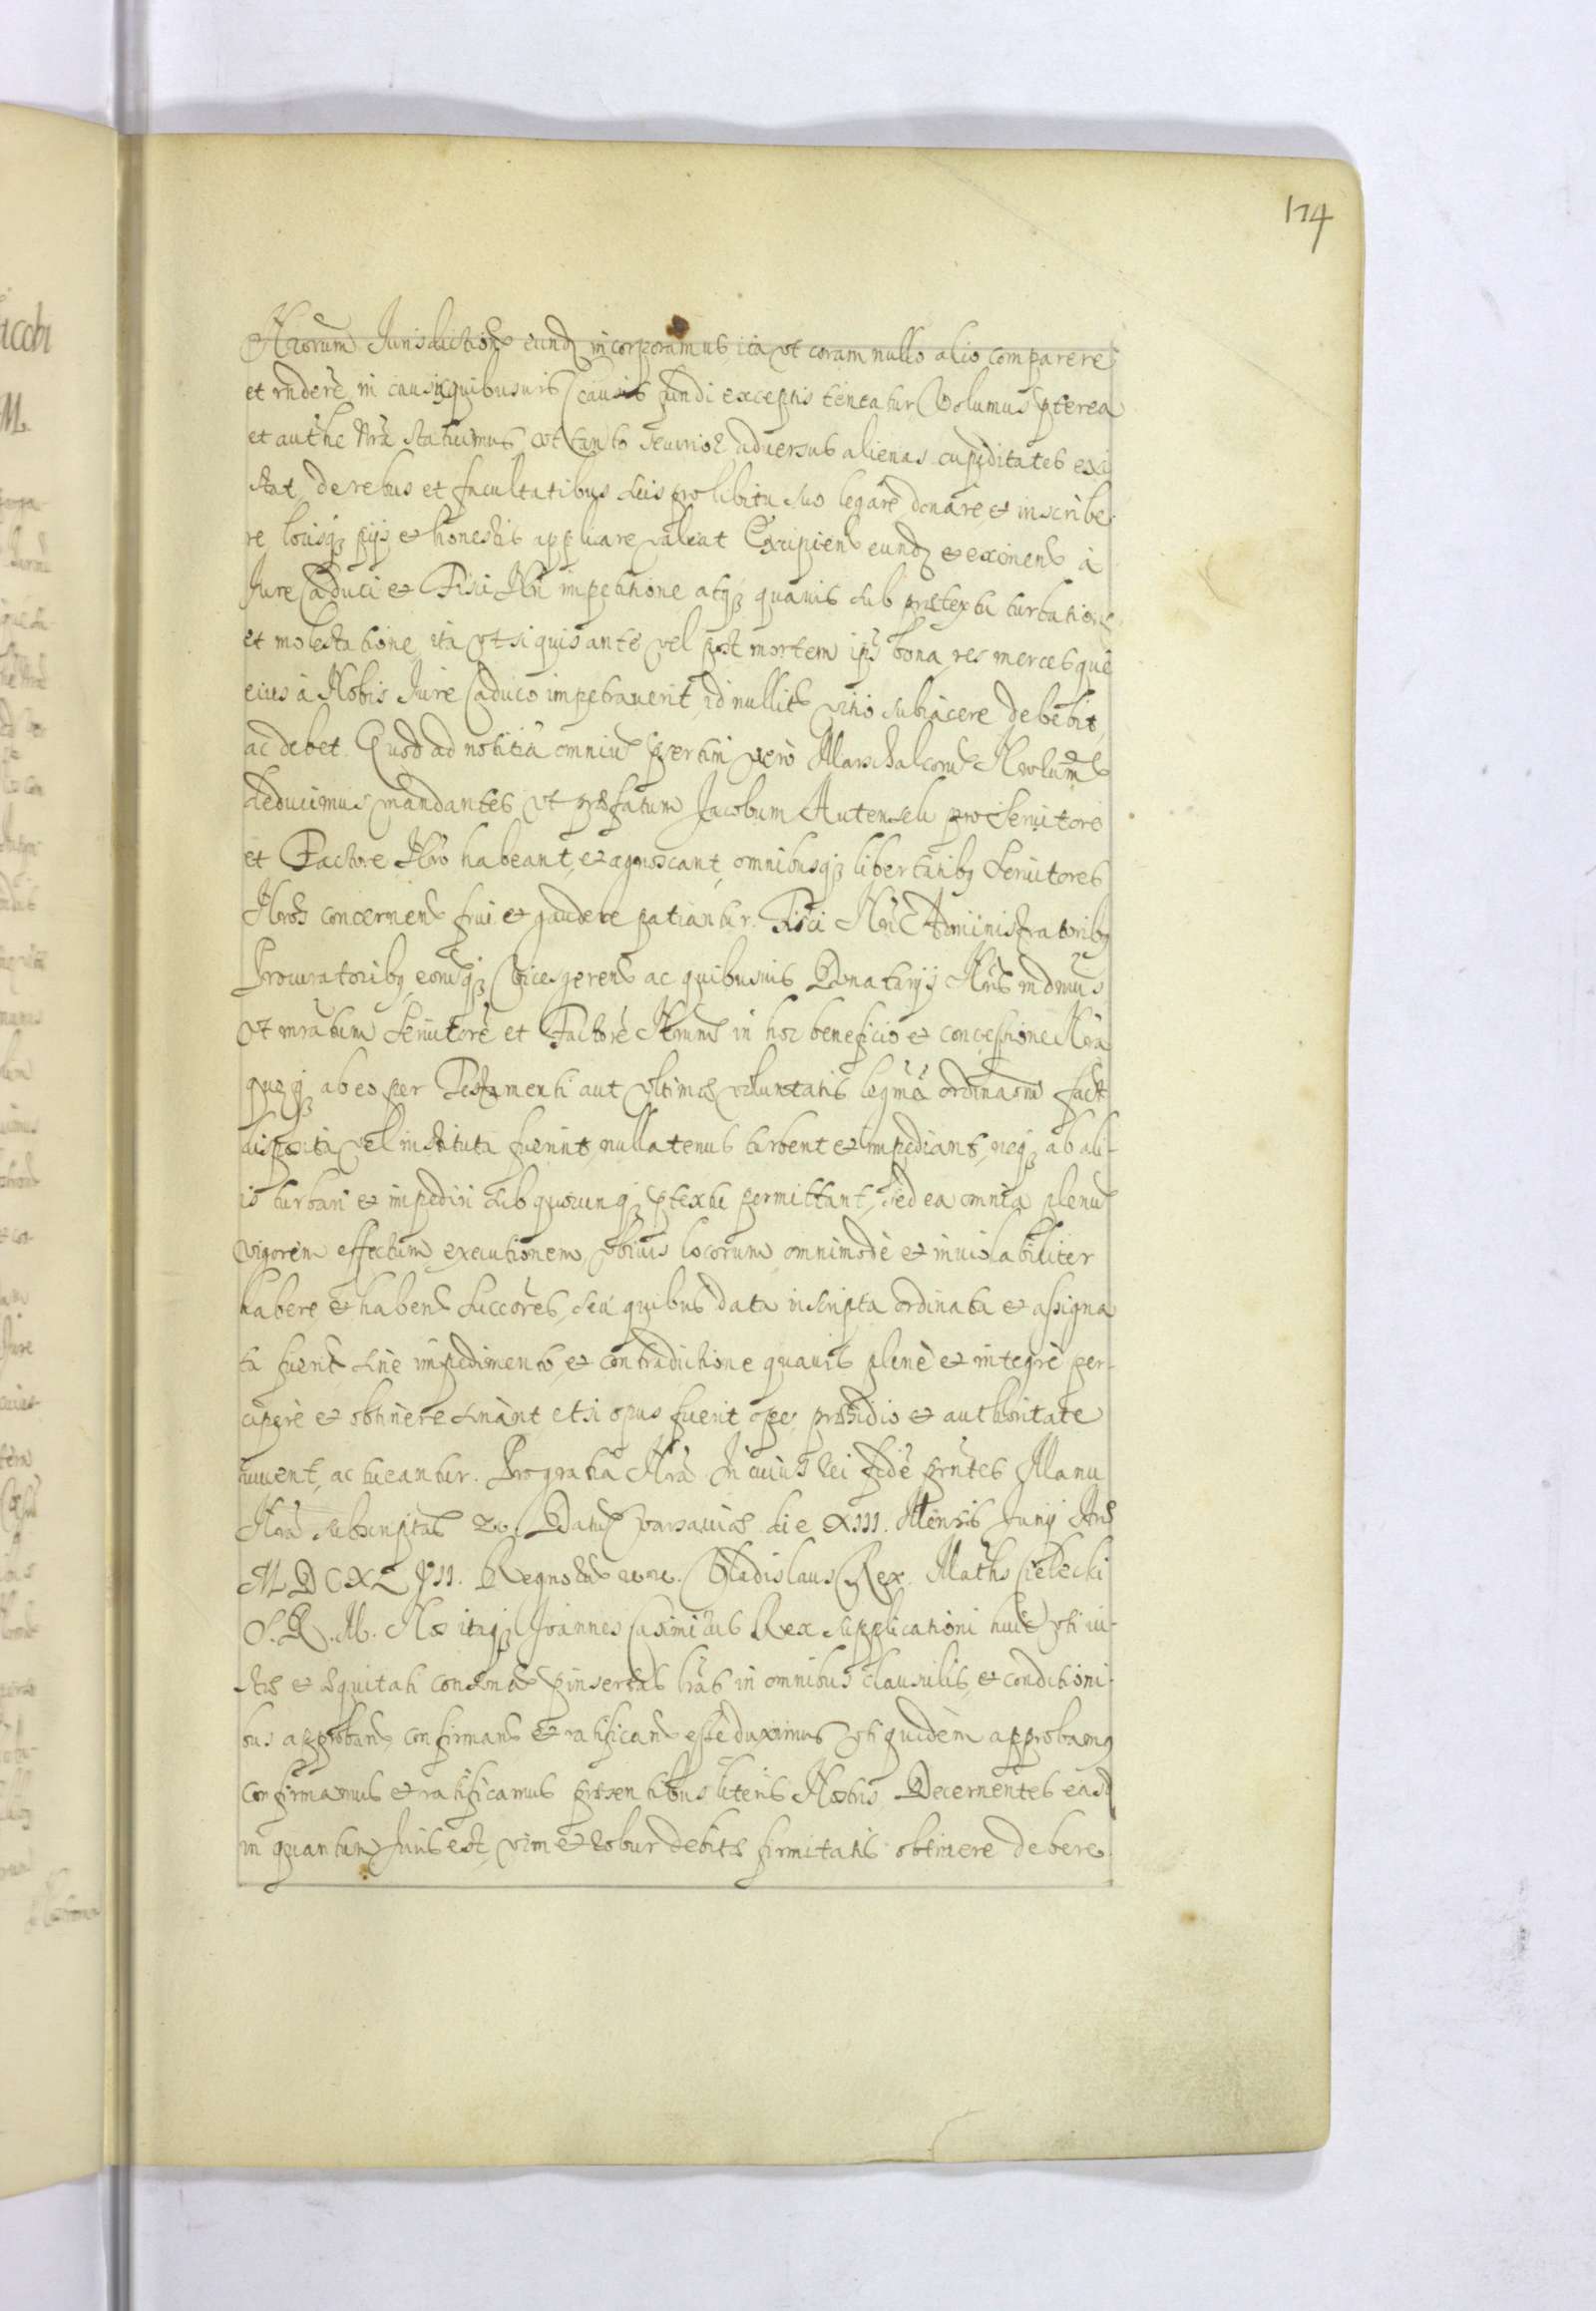 174
Nrorum Jurisdictione eund incorporamus ita vt coram nullo alio comparere
et rndere in causis quibusuis (causis fundi exceptis teneatur Volumus pterea
et authe Nra statuimus vt tanto securior aduersus alienas cupiditates exi
stat de rebus et facultatibus suis pro libitu suo legare donare et inscribe
re locisq pijs et honestis applicare valeat Excipien eund et eximen à
Jure Caduci et Fisci Nri impetitione atq quauis sub prætextu turbatione
et molestatione ita vt si quis ante vel post mortem ips bona res mercesque
eius à Nobis Jure Caduco impetrauerit id nullit vitio subiacere debebit
ac debet. Quod ad notitia omniu sertim vero Marschalcoru
deducimus mandantes vt præfatum Jacobum Autensch pro Seruitore
et Factore Nro habeant, et agnoscant, omnibusq libertatibq Seruitores
Nros concernen frui et gaudere patiantur. Fisci Nri Administratoribq
Procuratoribq eorusq vicesgeren ac quibusuis Donatarijs Nris mdmus
vt mratum Seruitore et Factore Nrum in hoc beneficio et concessione Nra
quæq ab eo per Testamenti aut vltimæ voluntatis legma ordinaone fact
disposita vel instituta fuerint, nullatenus turbent et impediant, neq ab ali-
is turbari et impediri sub quocunq ptextu permittant, sed ea omnia plenu
vigorem effectum, executionem, vbiuis locorum omnimode et inuiolabiliter
habere et haben Succores, seu quibus data inscripta ordinata et assigna
ta fuerit, sine impedimento, et contradictione quauis plenè et integrè per-
cipere et obtinere sinant et si opus fuerit ope, præsidio et authoritate
iuuent, ac tueantur. Pro gratia Nra In cuius rei fide prntes Manu
Nra subscriptas Datu Varsauiæ die XIII. Mensis Junij
MDCXL VII. Regnoru Vladislaus Rex. Maths Cielecki
S. R. M. Nos itaq Joannes Casimirus Rex supplicationi huic vti iu-
stæ et æquitati consonæ pinsertas lras in omnibus clausulis, et conditioni-
bus approban, confirman et ratifican esse duximus vti quidem approbamq
confirmamus et ratificamus præsentibus literis Nostris Decernentes easd
in quantum Juris est, vim et robur debitæ firmitatis obtinere debere